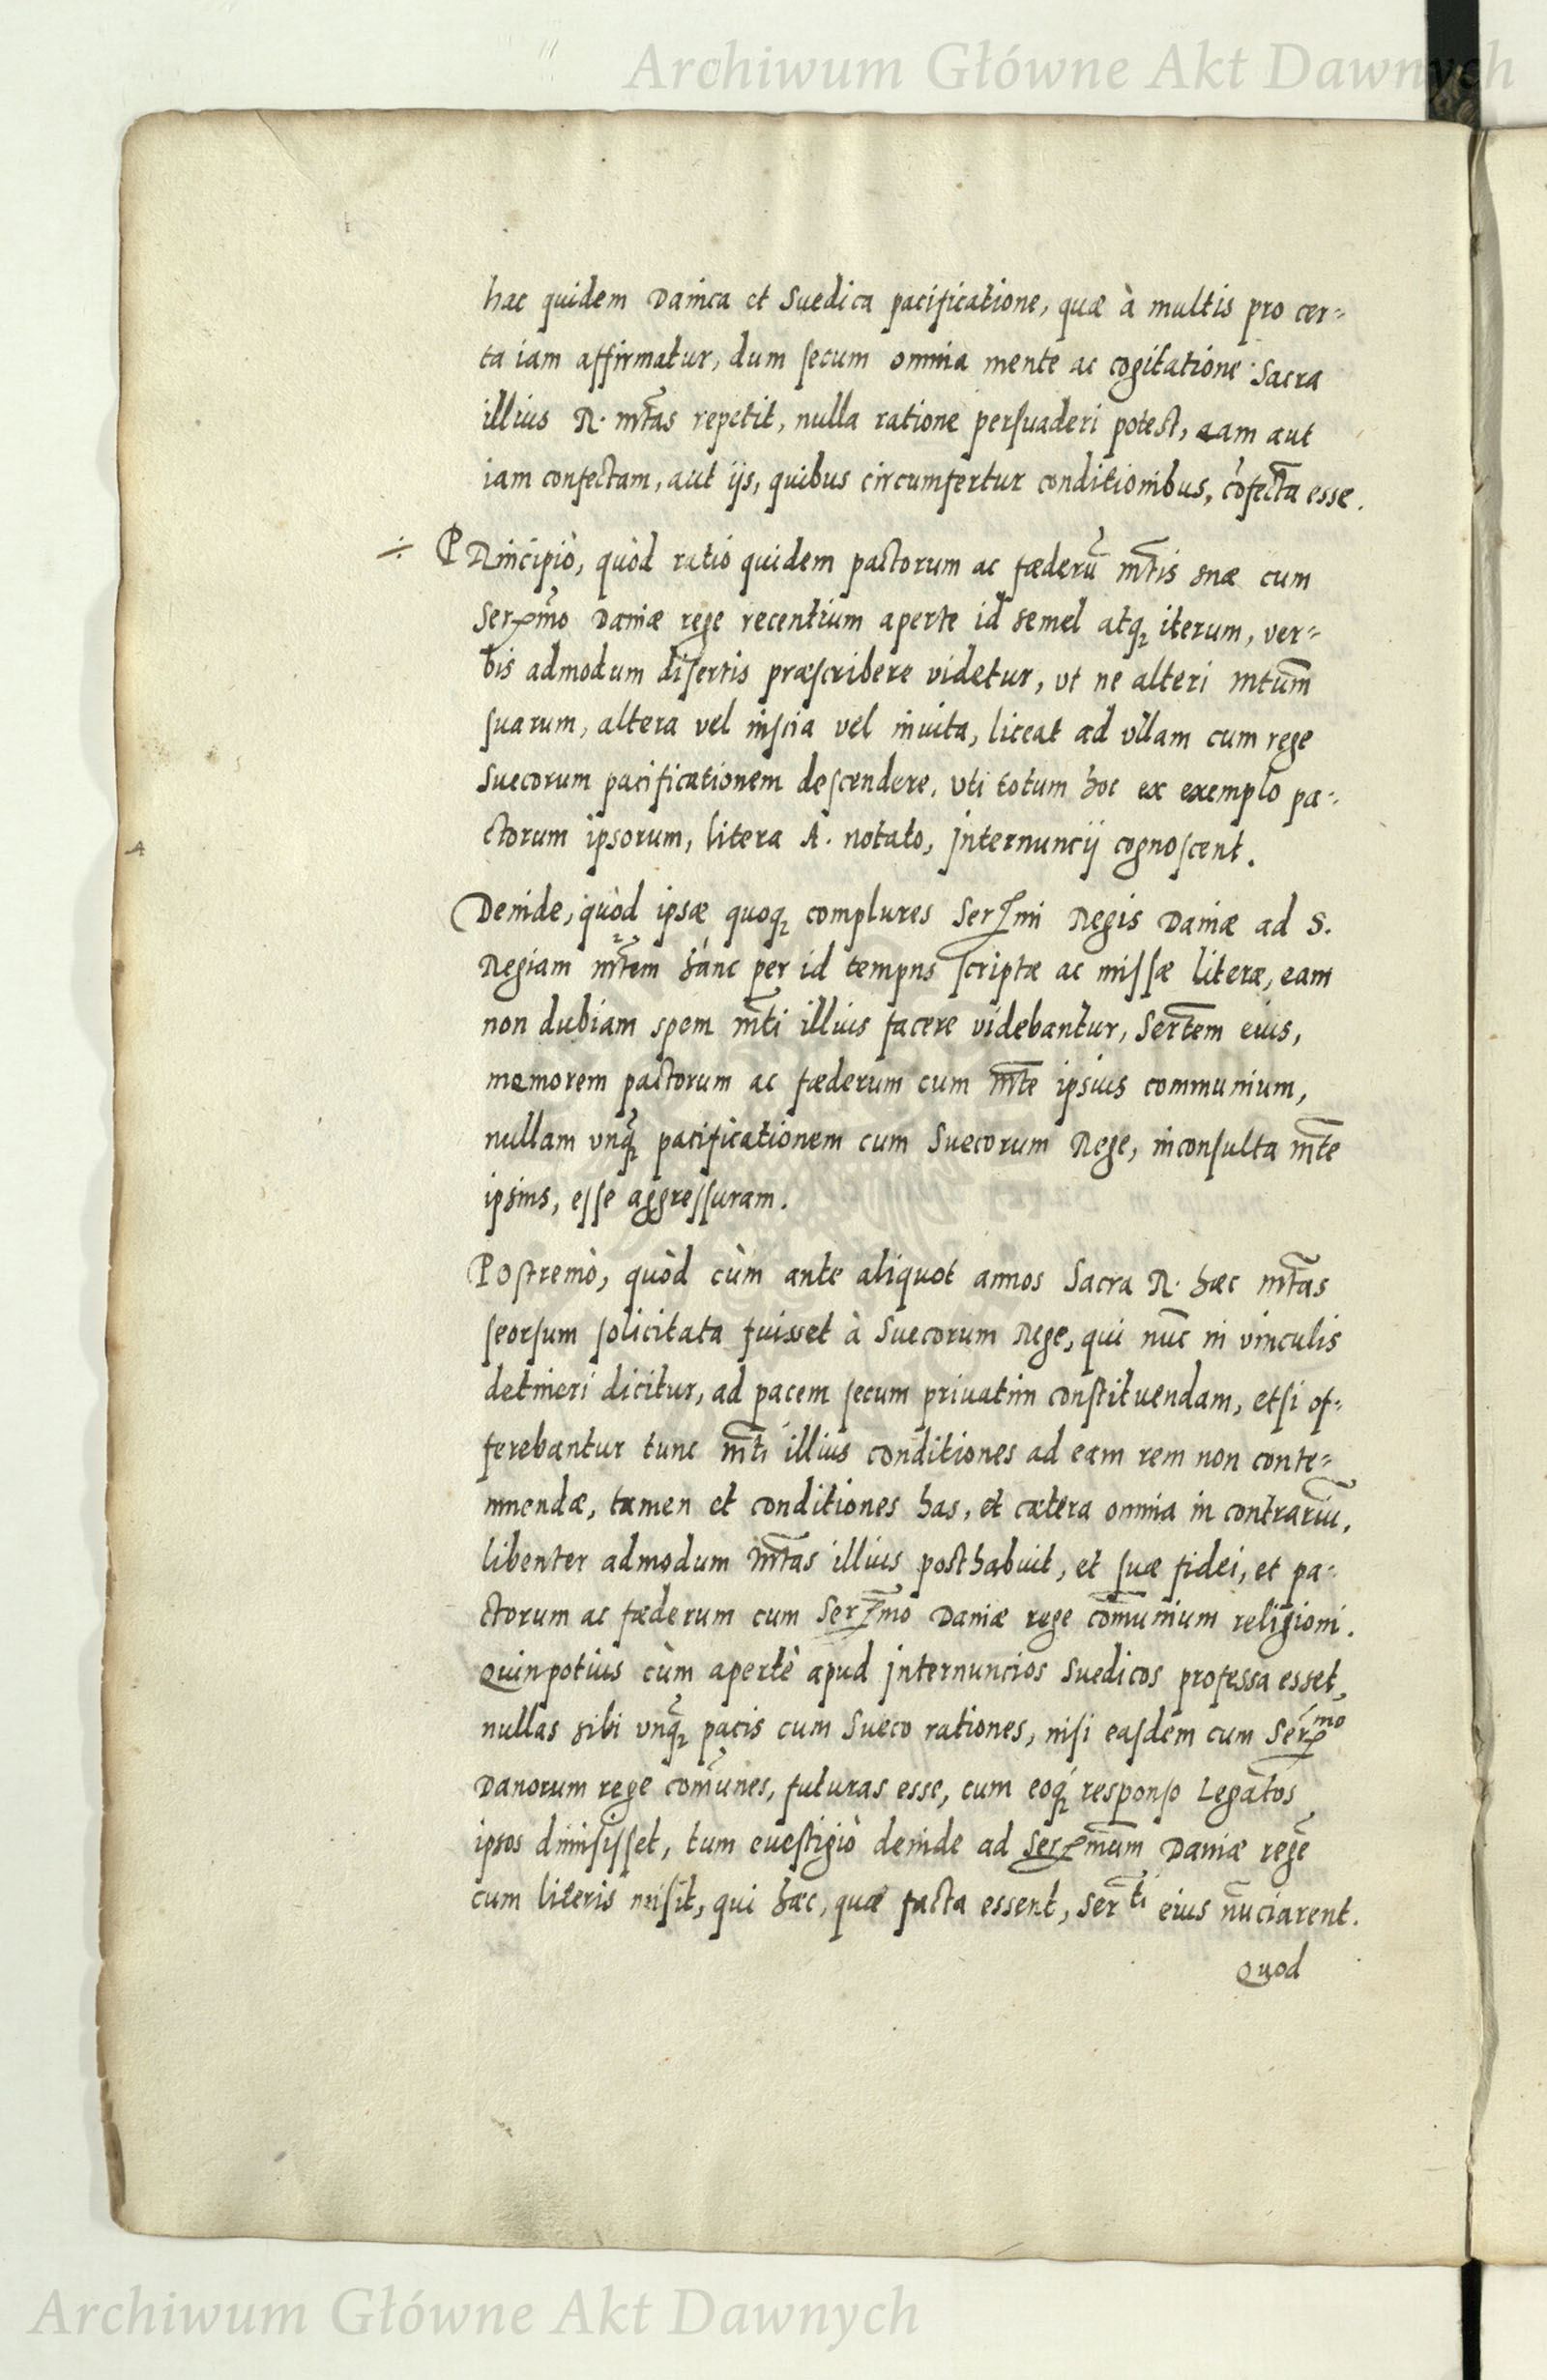 Archiwum Główne Akt Dawnych
hac quidem Danica et Suedica pacificatione, quæ à multis pro cer=
ta iam affirmatur, dum secum omnia mente ac cogitatione Sacra
illius R. mtas repetit, nulla ratione persuaderi potest, eam aut
iam confectam, aut ijs, quibus circumfertur conditionibus, cõfecta esse.
÷ PRincipiò, quòd ratio quidem pactorum ac fæderũ mtis suæ cum
Sermo Daniæ rege recentium aperte id semel atq; iterum, ver=
bis admodum disertis præscribere videtur, vt ne alteri mtum
suarum, altera vel inscia vel inuita, liceat ad vllam cum rege
Suecorum pacificationem descendere, vti totum hoc ex exemplo pa=
ctorum ipsorum, litera A. notato, internuncij cognoscent.
A
Deinde, quòd ipsæ quoq; complures Sermi Regis Daniæ ad S.
Regiam mtem hanc per id tempus scriptæ ac missæ literæ, eam
non dubiam spem mti illius facere videbantur, Sertem eius,
memorem pactorum ac fæderum cum mte ipsius communium,
nullam vnq̃; pacificationem cum Suecorum Rege, inconsulta mte
ipsius, esse aggressuram.
Postremò, quòd cùm ante aliquot annos Sacra R. hæc mtas
seorsum solicitata fuisset à Suecorum Rege, qui nũc in vinculis
detineri dicitur, ad pacem secum priuatim constituendam, etsi of=
ferebantur tunc mti illius conditiones ad eam rem non conte=
mnendæ, tamen et conditiones has, et cætera omnia in contrariũ,
libenter admodum mtas illius posthabuit, et suæ fidei, et pa=
ctorum ac fæderum cum Sermo Daniæ rege cõmunium religioni.
Quinpotius cùm apertè apud internuncios Suedicos professa esset,
nullas sibi vnq̃; pacis cum Sueco rationes, nisi easdem cum Sermo
Danorum rege com̃unes, futuras esse, cum eoq; responso Legatos
ipsos dimisisset, tum euestigiò deinde ad Sermum Daniæ regẽ
cum literis misit, qui hæc, quæ facta essent, Serti eius nũciarent.
Quod
Archiwum Główne Akt Dawnych